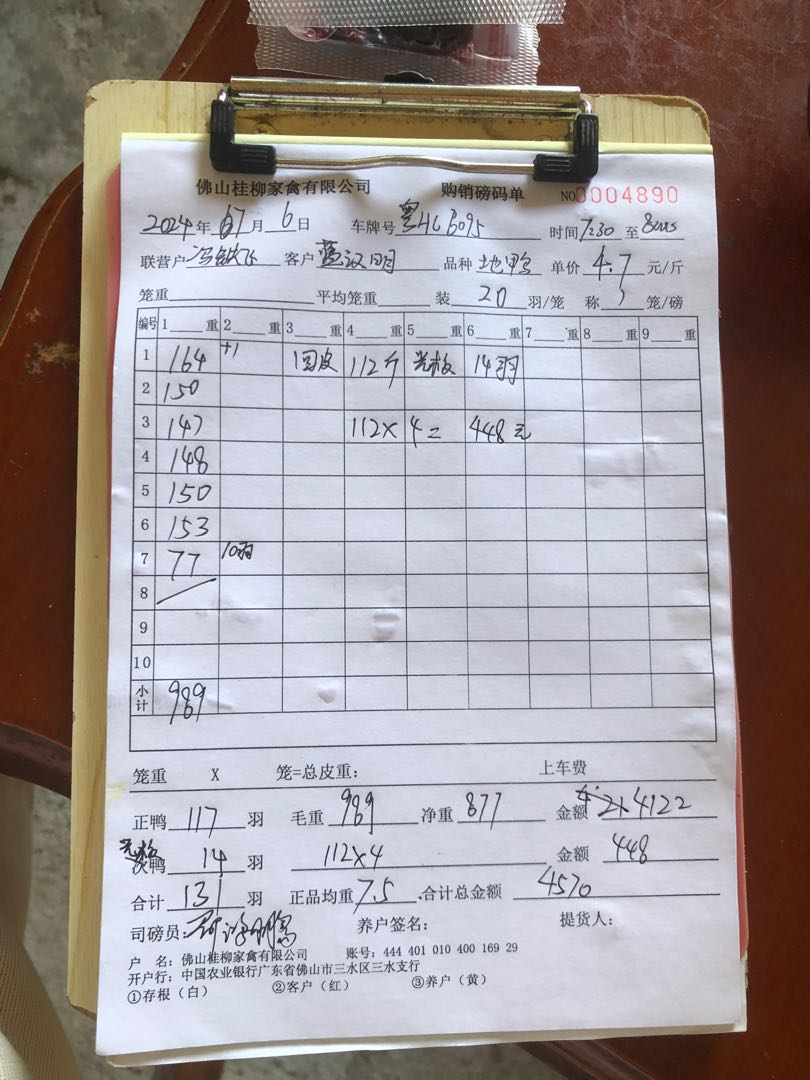 佛山桂柳家禽有限公司 购销磅码单 NO0004890
2024年 7月 6日 车牌号 粤H 时间 7:30 至
联营户 客户 蓝汉明 品种 地鸭 单价 4.7 元/斤
笼重 平均笼重 装 20 羽/笼 称 笼/磅
编号 1 重 2 重 3 重 4 重 5 重 6 重 7 重 8 重 9 重
1 164 +1 回皮 112斤 光板 14羽
2 150
3 147 112× 4= 448元
4 148
5 150
6 153
7 77 10羽
8
9
10
小计 989
笼重 X 笼=总皮重: 上车费
正鸭 117 羽 毛重 989 净重 877 金额 4122
光板 次鸭 14 羽 112×4 金额 448
合计 131 羽 正品均重 7.5 .合计总金额 4570
司磅员: 养户签名: 提货人:
户 名: 佛山桂柳家禽有限公司 账号: 444 401 010 400 169 29
开户行: 中国农业银行广东省佛山市三水区三水支行
①存根（白） ②客户（红） ③养户（黄）